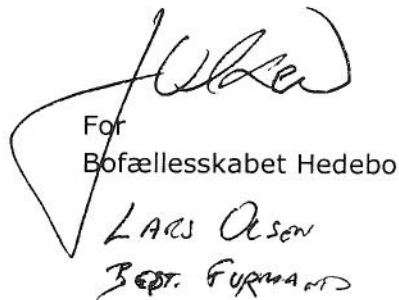 For
Bofællesskabet Hedebo
LARS OLSEN
BEST. FORMAND